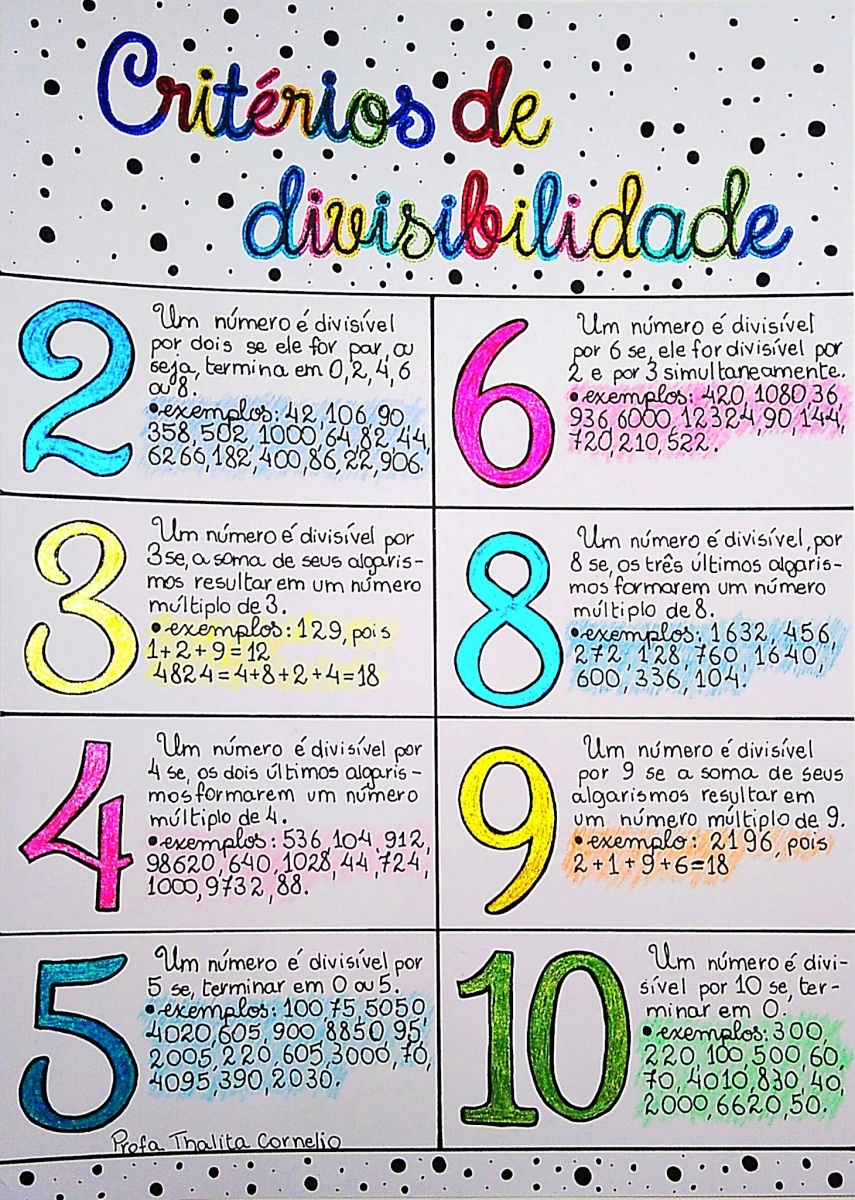 Critérios de
divisibilidade
2
Um número é divisível
por dois se ele for par, ou
seja, termina em 0, 2, 4, 6
ou 8.
•exemplos: 42, 106, 90,
358, 502, 1000, 64, 82, 44,
6266, 182, 400, 86, 22, 906.
3
Um número é divisível por
3 se, a soma de seus algaris-
mos resultar em um número
múltiplo de 3.
•exemplos: 129, pois
1+2+9=12
4824=4+8+2+4=18
4
Um número é divisível por
4 se, os dois últimos algaris-
mos formarem um número
múltiplo de 4.
•exemplos: 536, 104, 912,
98620, 640, 1028, 44, 724,
1000, 9732, 88.
5
Um número é divisível por
5 se, terminar em 0 ou 5.
•exemplos: 100, 75, 5050,
4020, 605, 900, 8850, 95,
2005, 220, 605, 3000, 70,
4095, 390, 2030.
Profa Thalita Cornelio
6
Um número é divisível
por 6 se, ele for divisível por
2 e por 3 simultaneamente.
•exemplos: 420, 1080, 36,
936, 6000, 12324, 90, 144,
720, 210, 522.
8
Um número é divisível, por
8 se, os três últimos algaris-
mos formarem um número
múltiplo de 8.
•exemplos: 1632, 456,
272, 128, 760, 1640,
600, 336, 104.
9
Um número é divisível
por 9 se a soma de seus
algarismos resultar em
um número múltiplo de 9.
•exemplo: 2196, pois
2+1+9+6=18
10
Um número é divi-
sível por 10 se, ter-
minar em 0.
•exemplos: 300,
220, 100, 500, 60,
70, 4010, 830, 40,
2000, 6620, 50.